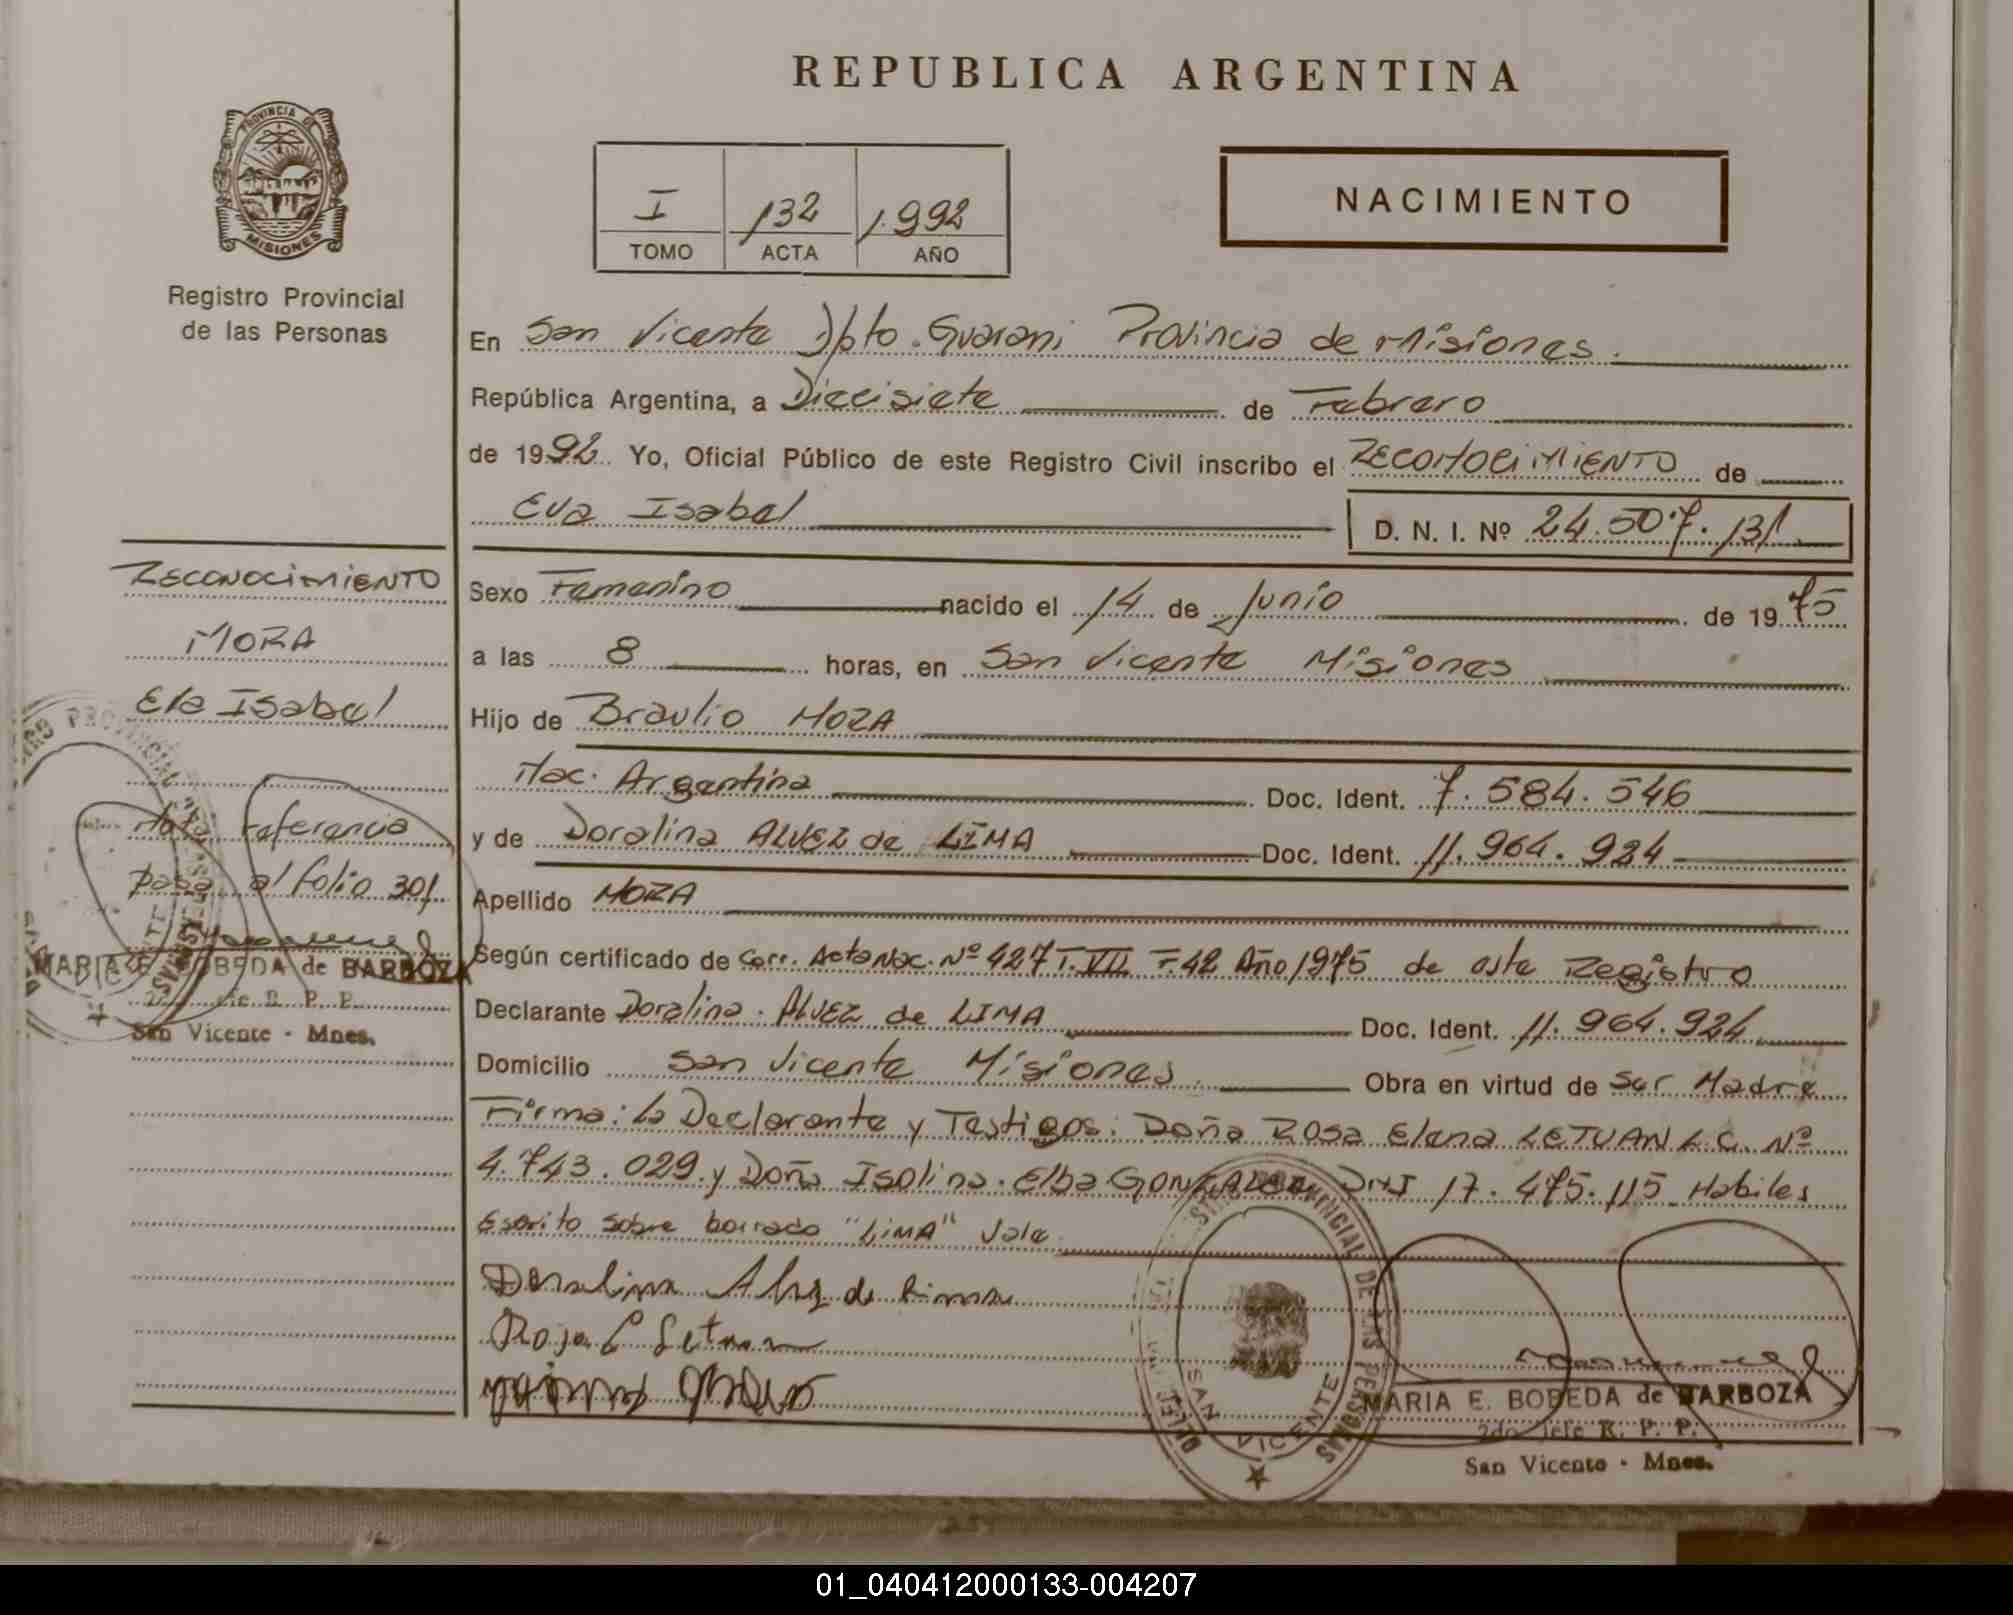 REPUBLICA ARGENTINA
PROVINCIA DE
MISIONES
Registro Provincial
de las Personas
I 132 1.992
TOMO ACTA AÑO
NACIMIENTO
En San Vicente Dpto. Guarani Provincia de Misiones.
República Argentina, a Diecisiete de Febrero
de 1992. Yo, Oficial Público de este Registro Civil inscribo el RECONOCIMIENTO de
Eva Isabel D. N. I. Nº 24.507.131
Sexo Femenino nacido el 14 de Junio de 1975
a las 8 horas, en San Vicente Misiones
Hijo de Braulio MORA
Nac. Argentina Doc. Ident. 7.584.546
y de Doralina ALVEZ de LIMA Doc. Ident. 11.964.924
Apellido MORA
Según certificado de Corr. Acta Nac. Nº 427 T. VII F. 42 Año 1975 de este Registro
Declarante Doralina. ALVEZ de LIMA Doc. Ident. 11.964.924
Domicilio San Vicente Misiones. Obra en virtud de Ser Madre
Firma: La Declarante y Testigos: Doña Rosa Elena LETUAN L.C. Nº
4.743.029. y Doña Isolina. Elba GONZALEZ DNI 17.475.115 Habiles
Escrito sobre borrado "LIMA" Vale
Doralina Alvez de Lima
Rosa E Letuan
RECONOCIMIENTO
MORA
Eva Isabel
Nota referencia
pasa al folio 301
MARIA E. BOBEDA de BARBOZA
2do. Jefe R. P. P.
San Vicente - Mnes.
REGISTRO PROVINCIAL DE LAS PERSONAS
SAN VICENTE
MARIA E. BOBEDA de BARBOZA
2do Jefe R. P. P.
San Vicente - Mnes.
01_040412000133-004207